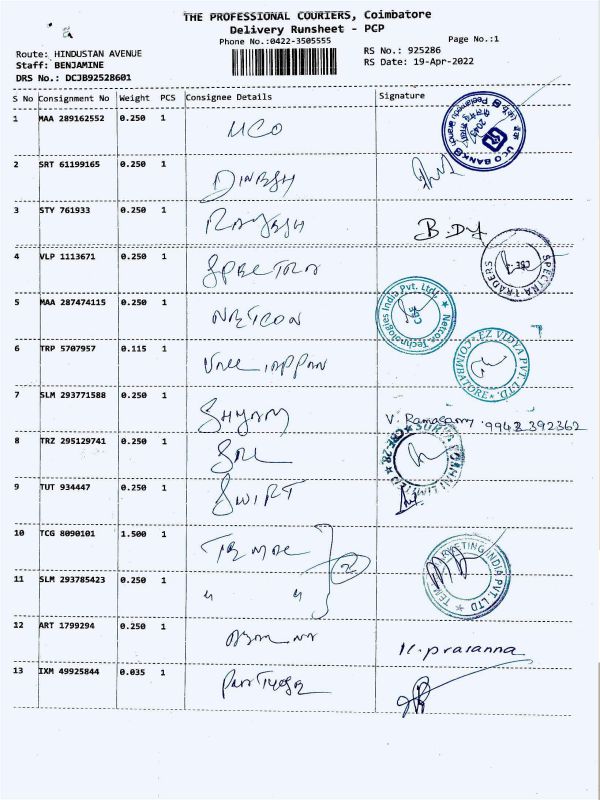 THE PROFESSIONAL COURIERS, Coimbatore
Delivery Runsheet - PCP
Phone No.:0422-3505555
Page No.:1
Route: HINDUSTAN AVENUE
Staff: BENJAMINE
DRS No.: DCJB92528601
RS No.: 925286
RS Date: 19-Apr-2022
S No Consignment No Weight PCS Consignee Details Signature
1 MAA 289162552 0.250 1 UCO
UCO BANK
2 SRT 61199165 0.250 1 DINESH
3 STY 761933 0.250 1 RAJESH B.
4 VLP 1113671 0.250 1 SPECTRA
SPECTRA TRADERS CBE
5 MAA 287474115 0.250 1 NETCON
Netcon Technologies India Pvt. Ltd. CBE
6 TRP 5707957 0.115 1 VALLIAPPAN
EZ VIDYA PVT. LTD. COIMBATORE
7 SLM 293771588 0.250 1 SHYAM V. Ramasamy 9942392362
8 TRZ 295129741 0.250 1
LIMITED
9 TUT 934447 0.250 1 SWIFT
10 TCG 8090101 1.500 1
MARKETING INDIA PVT LTD
11 SLM 293785423 0.250 1 " " 2
12 ART 1799294 0.250 1 K. prasanna
13 IXM 49925844 0.035 1